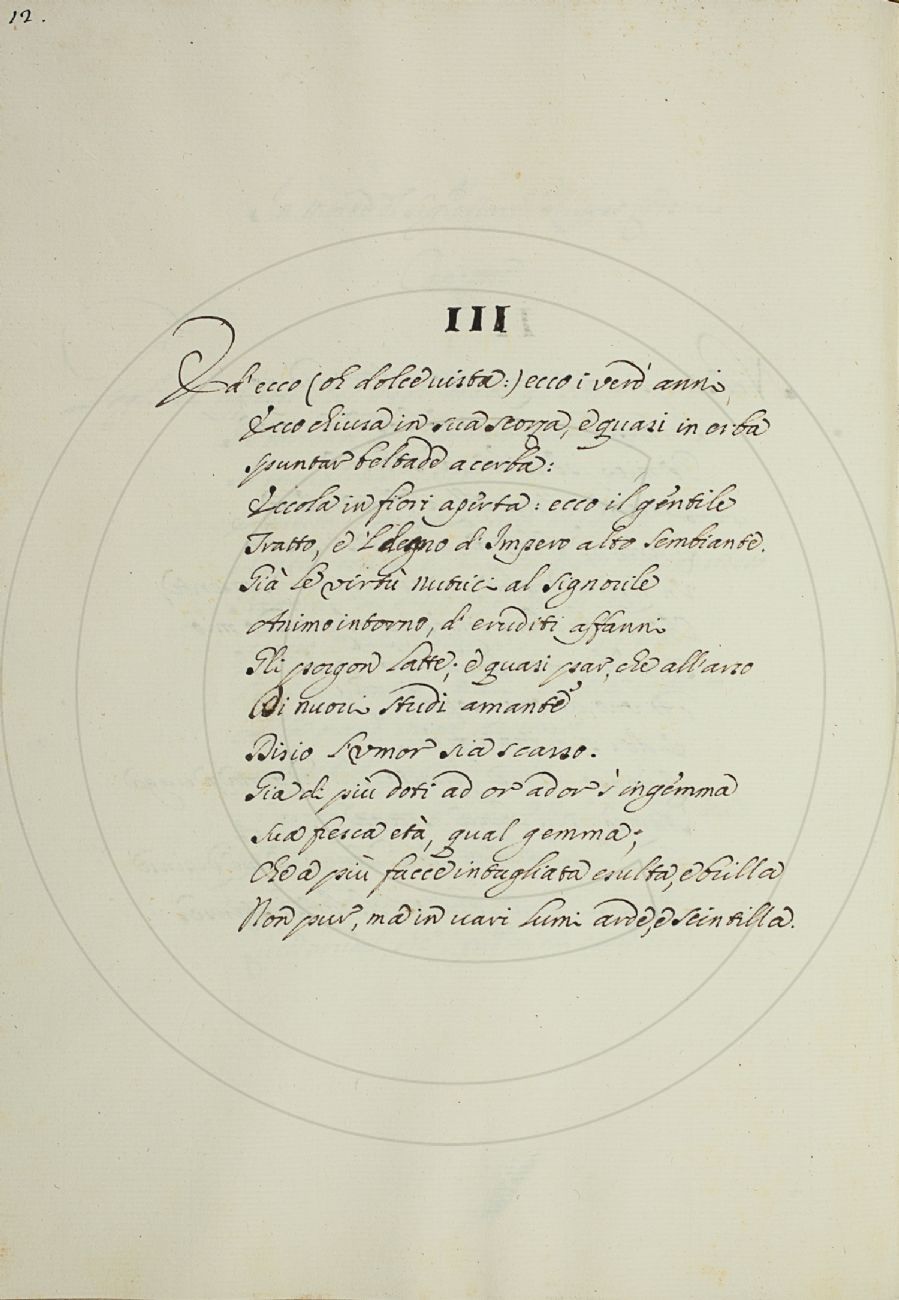 12.
III
Ed ecco (oh dolce vista:) ecco i verd' anni,
Ecco chiusa in sua scorza, e quasi in erba
spuntar beltade acerba:
Eccola in fiori aperta: ecco il gentile
Tratto, e 'l degno d' Impero alto sembiante.
Già le virtù nutrici al signorile
Animo intorno, d' eruditi affanni
Gli porgon latte; e quasi par, che all' arso
Di nuovi studi amante
Disio l' umor sia scarso.
Già di più doti ad or ad or s' ingemma
sua fresca età, qual gemma;
Che a più facce intagliata esulta, e brilla
Non pur, ma in vari lumi arde, e scintilla.